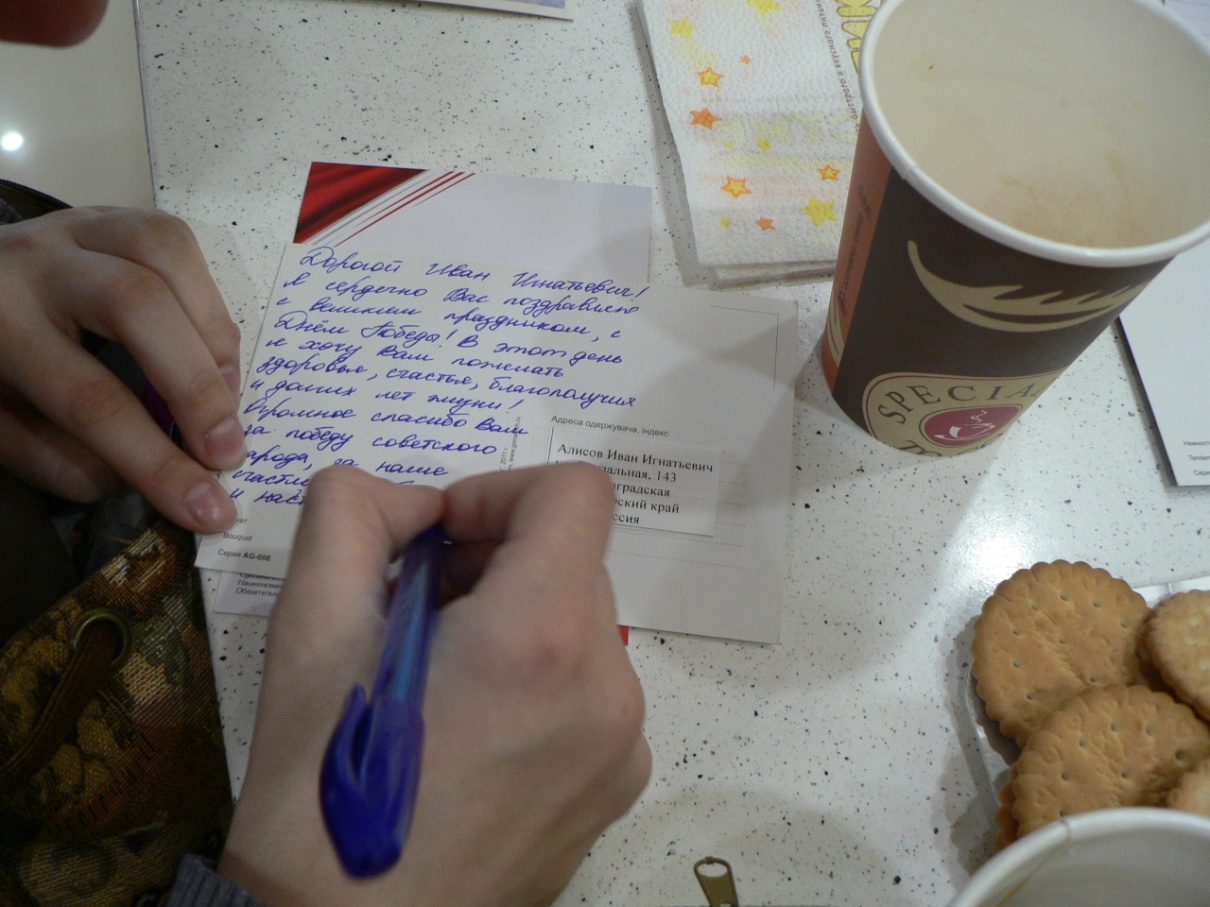 Дорогой Иван Игнатьевич!
я сердечно Вас поздравляю
с великим праздником, с
Днём Победы! В этот день
я хочу Вам пожелать
здоровья, счастья, благополучия
и долгих лет жизни!
Огромное спасибо Вам
за победу советского
народа, за наше
Bouquet
Серия AG-006
Адреса одержувача, індекс
Алисов Иван Игнатьевич
143
SPECIAL